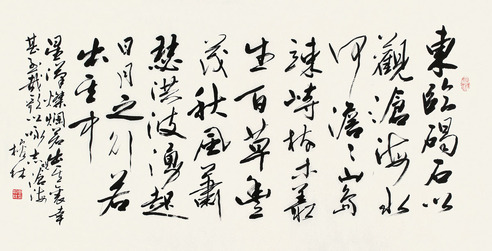 東臨碣石以
觀滄海水
何澹〻山島
竦峙樹木叢
生百草豐
茂秋風蕭
瑟洪波湧起
日月之行若
出其中
星漢燦爛若出其裏幸
甚至哉歌以詠志滄海